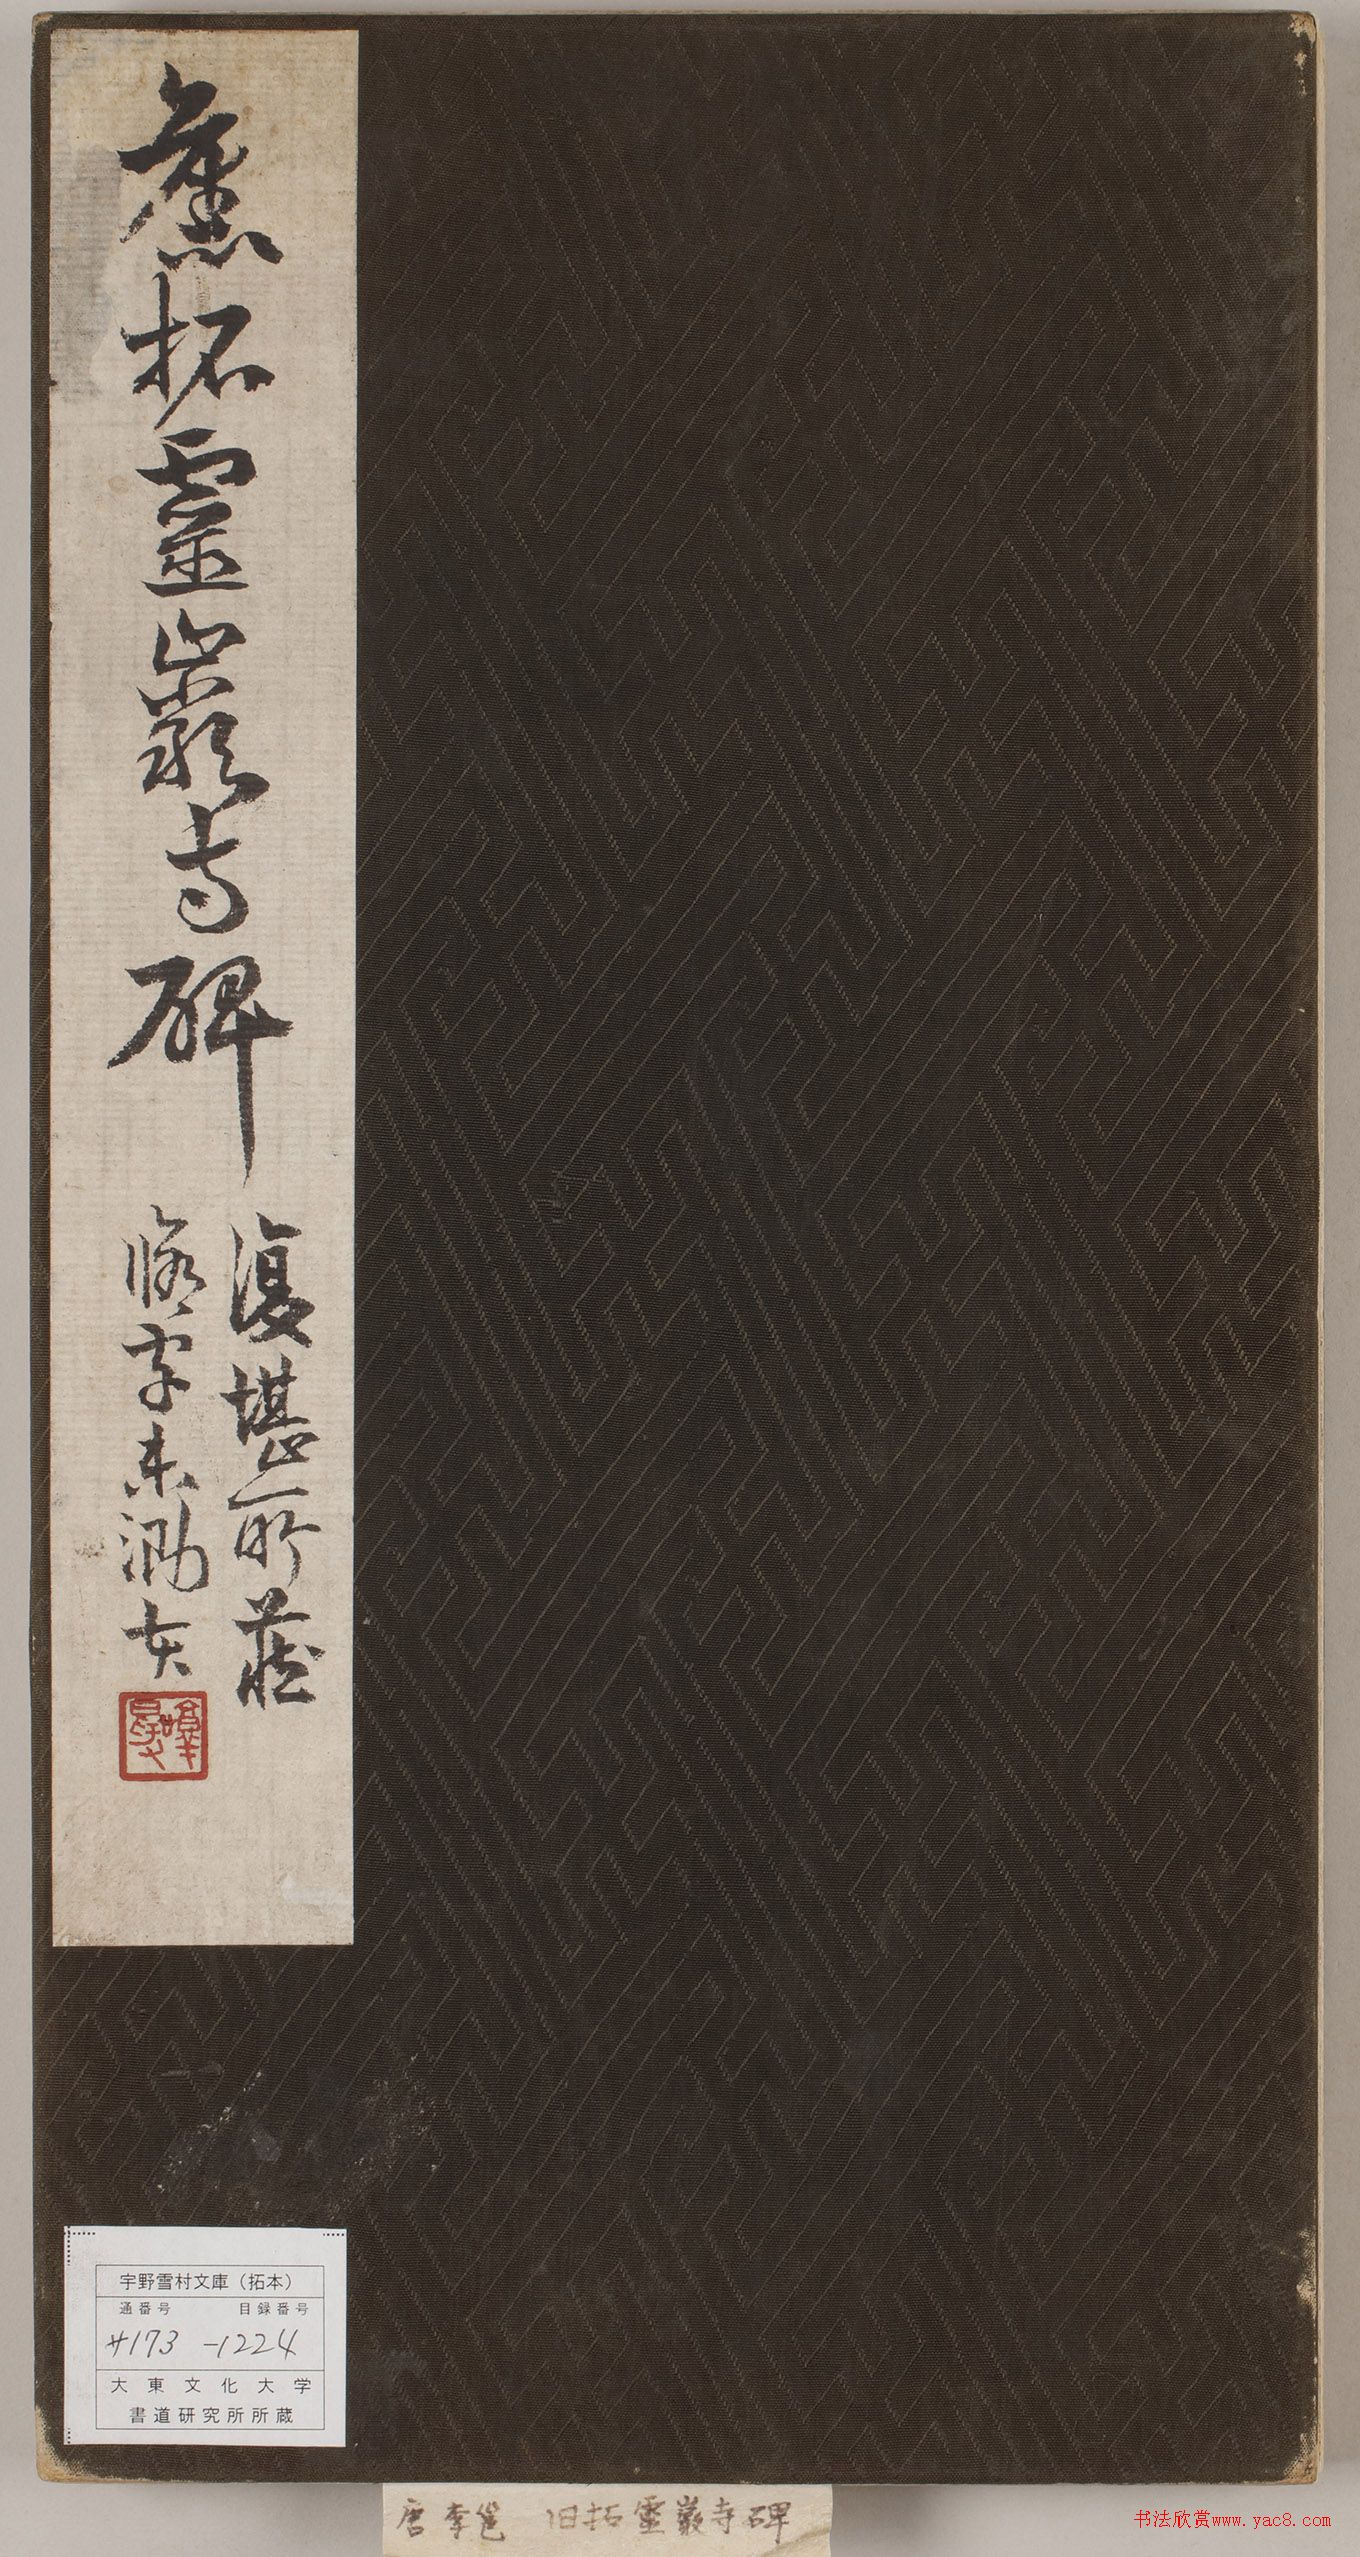 舊拓靈巖寺碑
復堪所藏
字未泐本
宇野雪村文庫（拓本）
通番号 目録番号
サ173 -1224
大東文化大学
書道研究所所蔵
唐李邕 旧拓靈巌寺碑
书法欣赏www.yac8.com